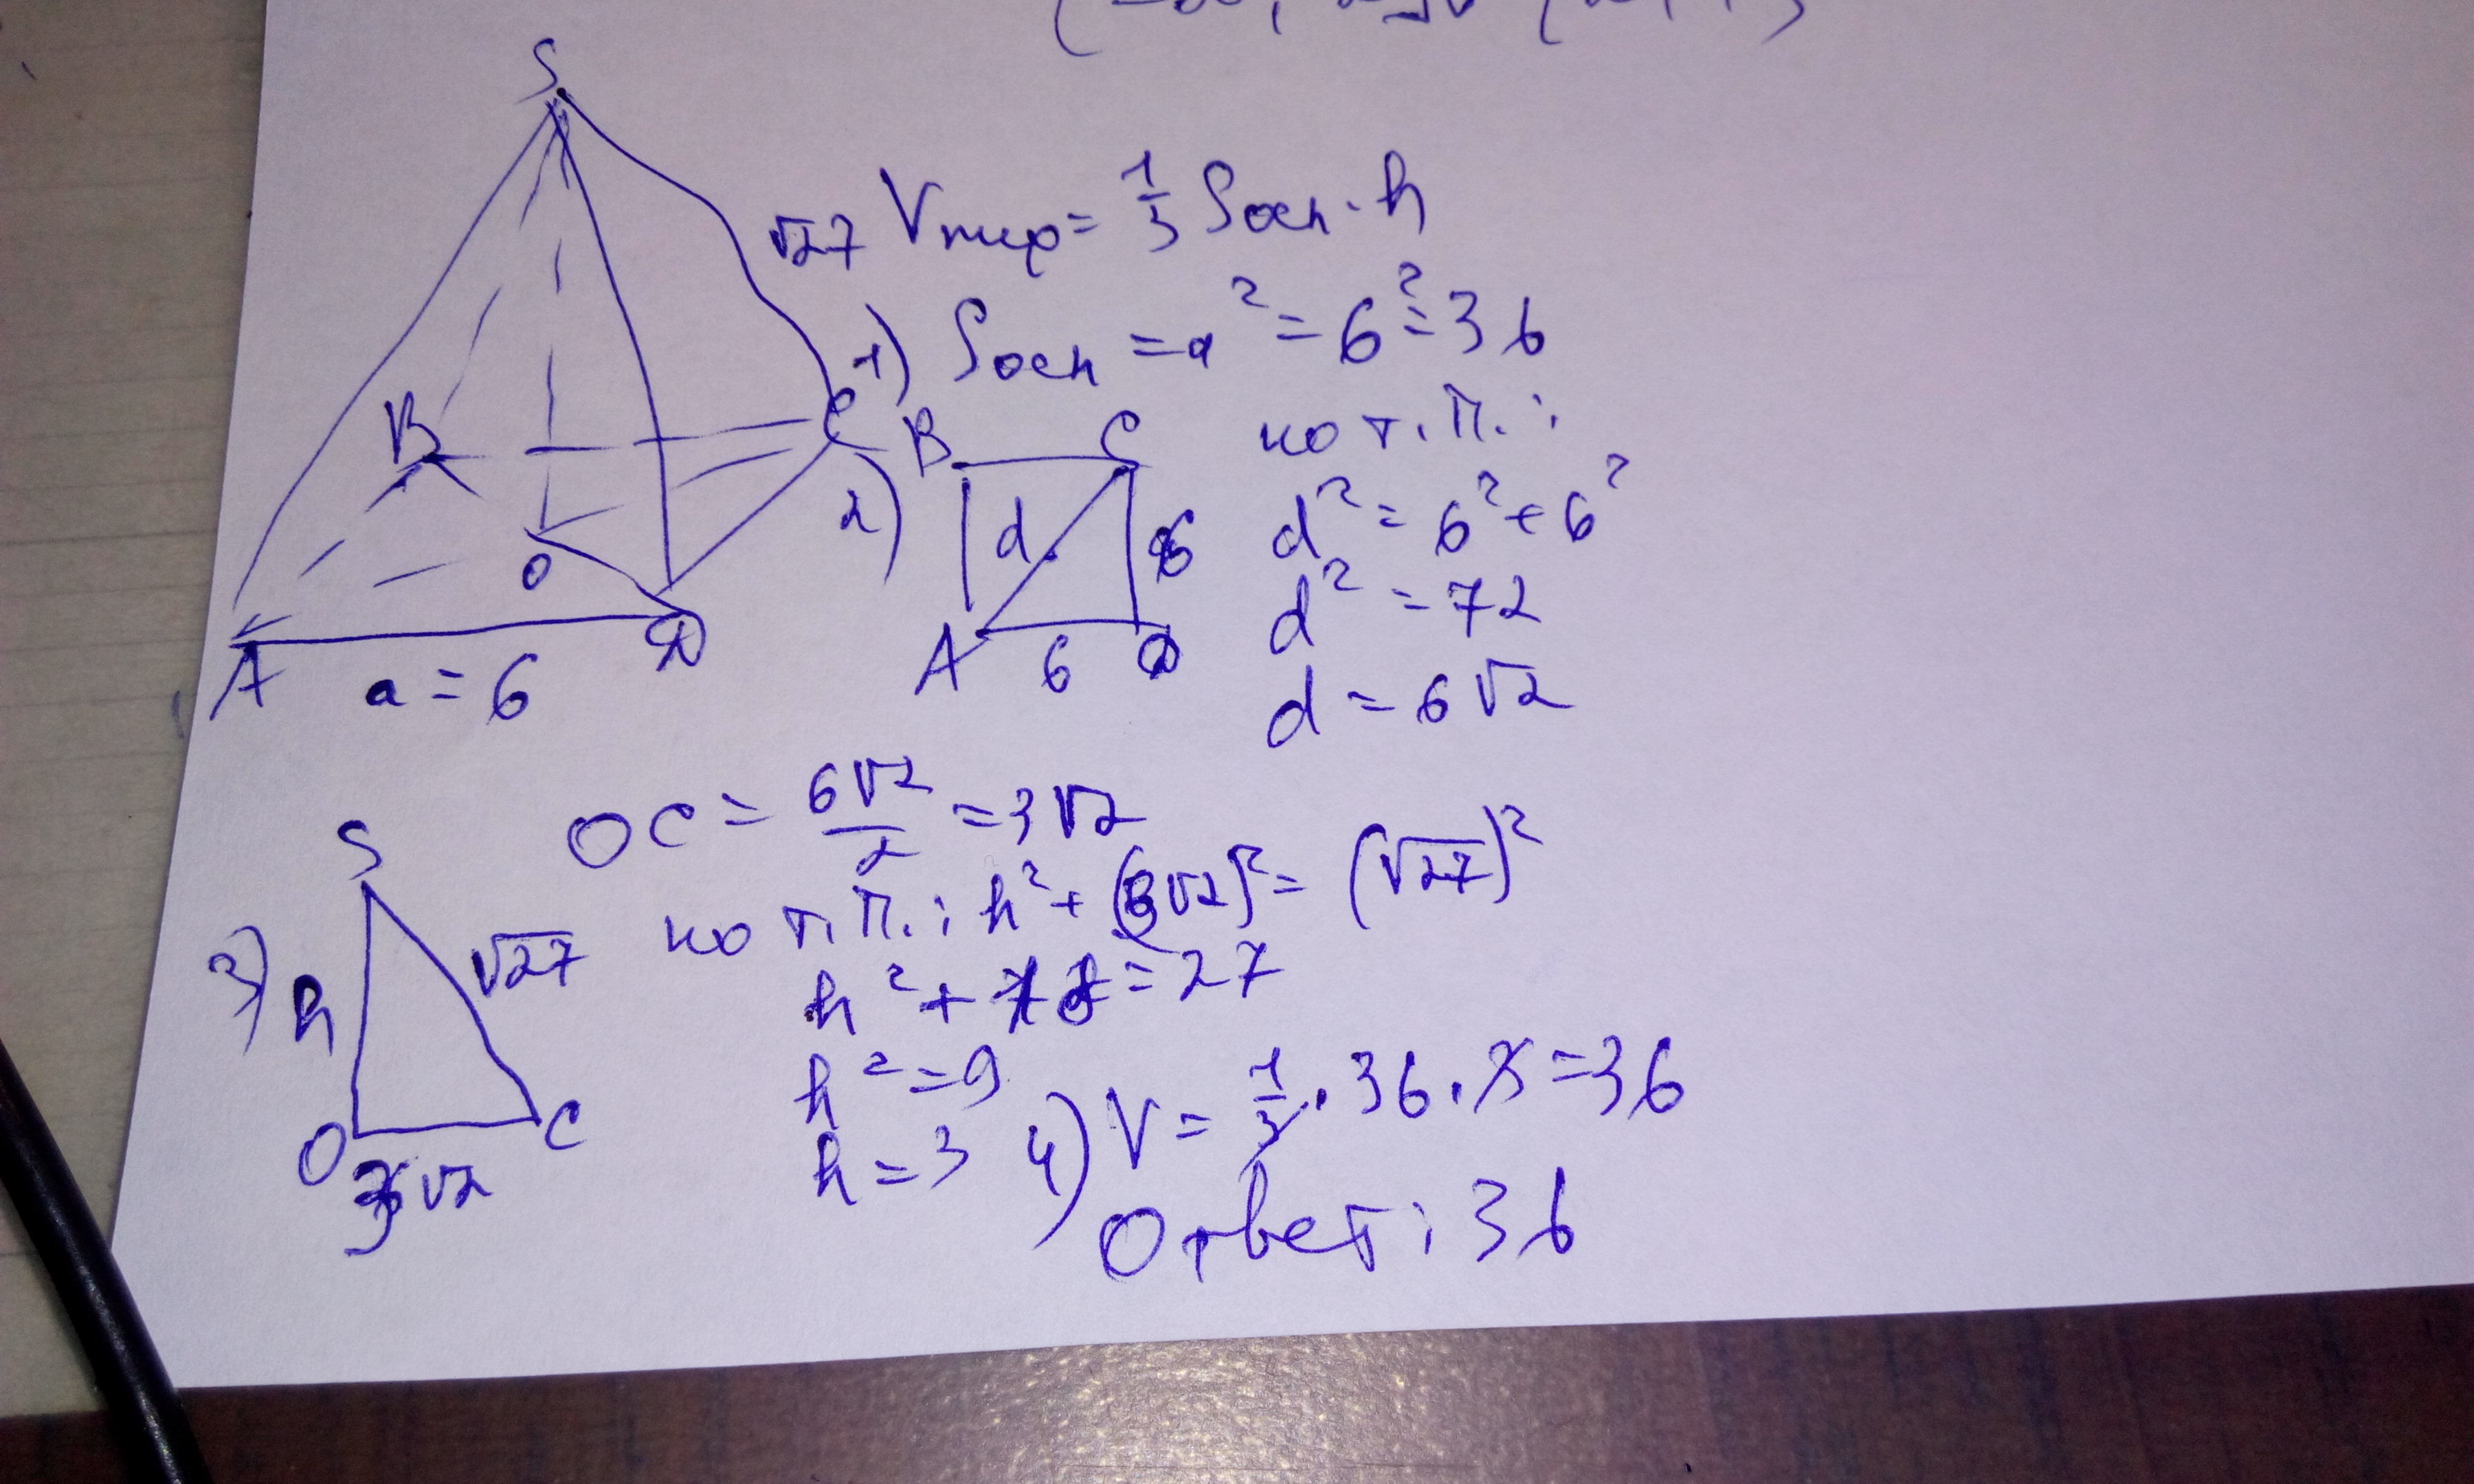 S
√27
V пир = 1/3 S осн · h
1) S осн = a² = 6² = 36
B
C
A
D
O
a = 6
2)
B
C
d
6
A
6
D
по т. П. :
d² = 6² + 6²
d² = 72
d = 6√2
OC = 6√2/2 = 3√2
3)
S
h
√27
O
C
3√2
по т. П. : h² + (3√2)² = (√27)²
h² + 18 = 27
h² = 9
h = 3
4) V = 1/3 · 36 · 3 = 36
Ответ : 36